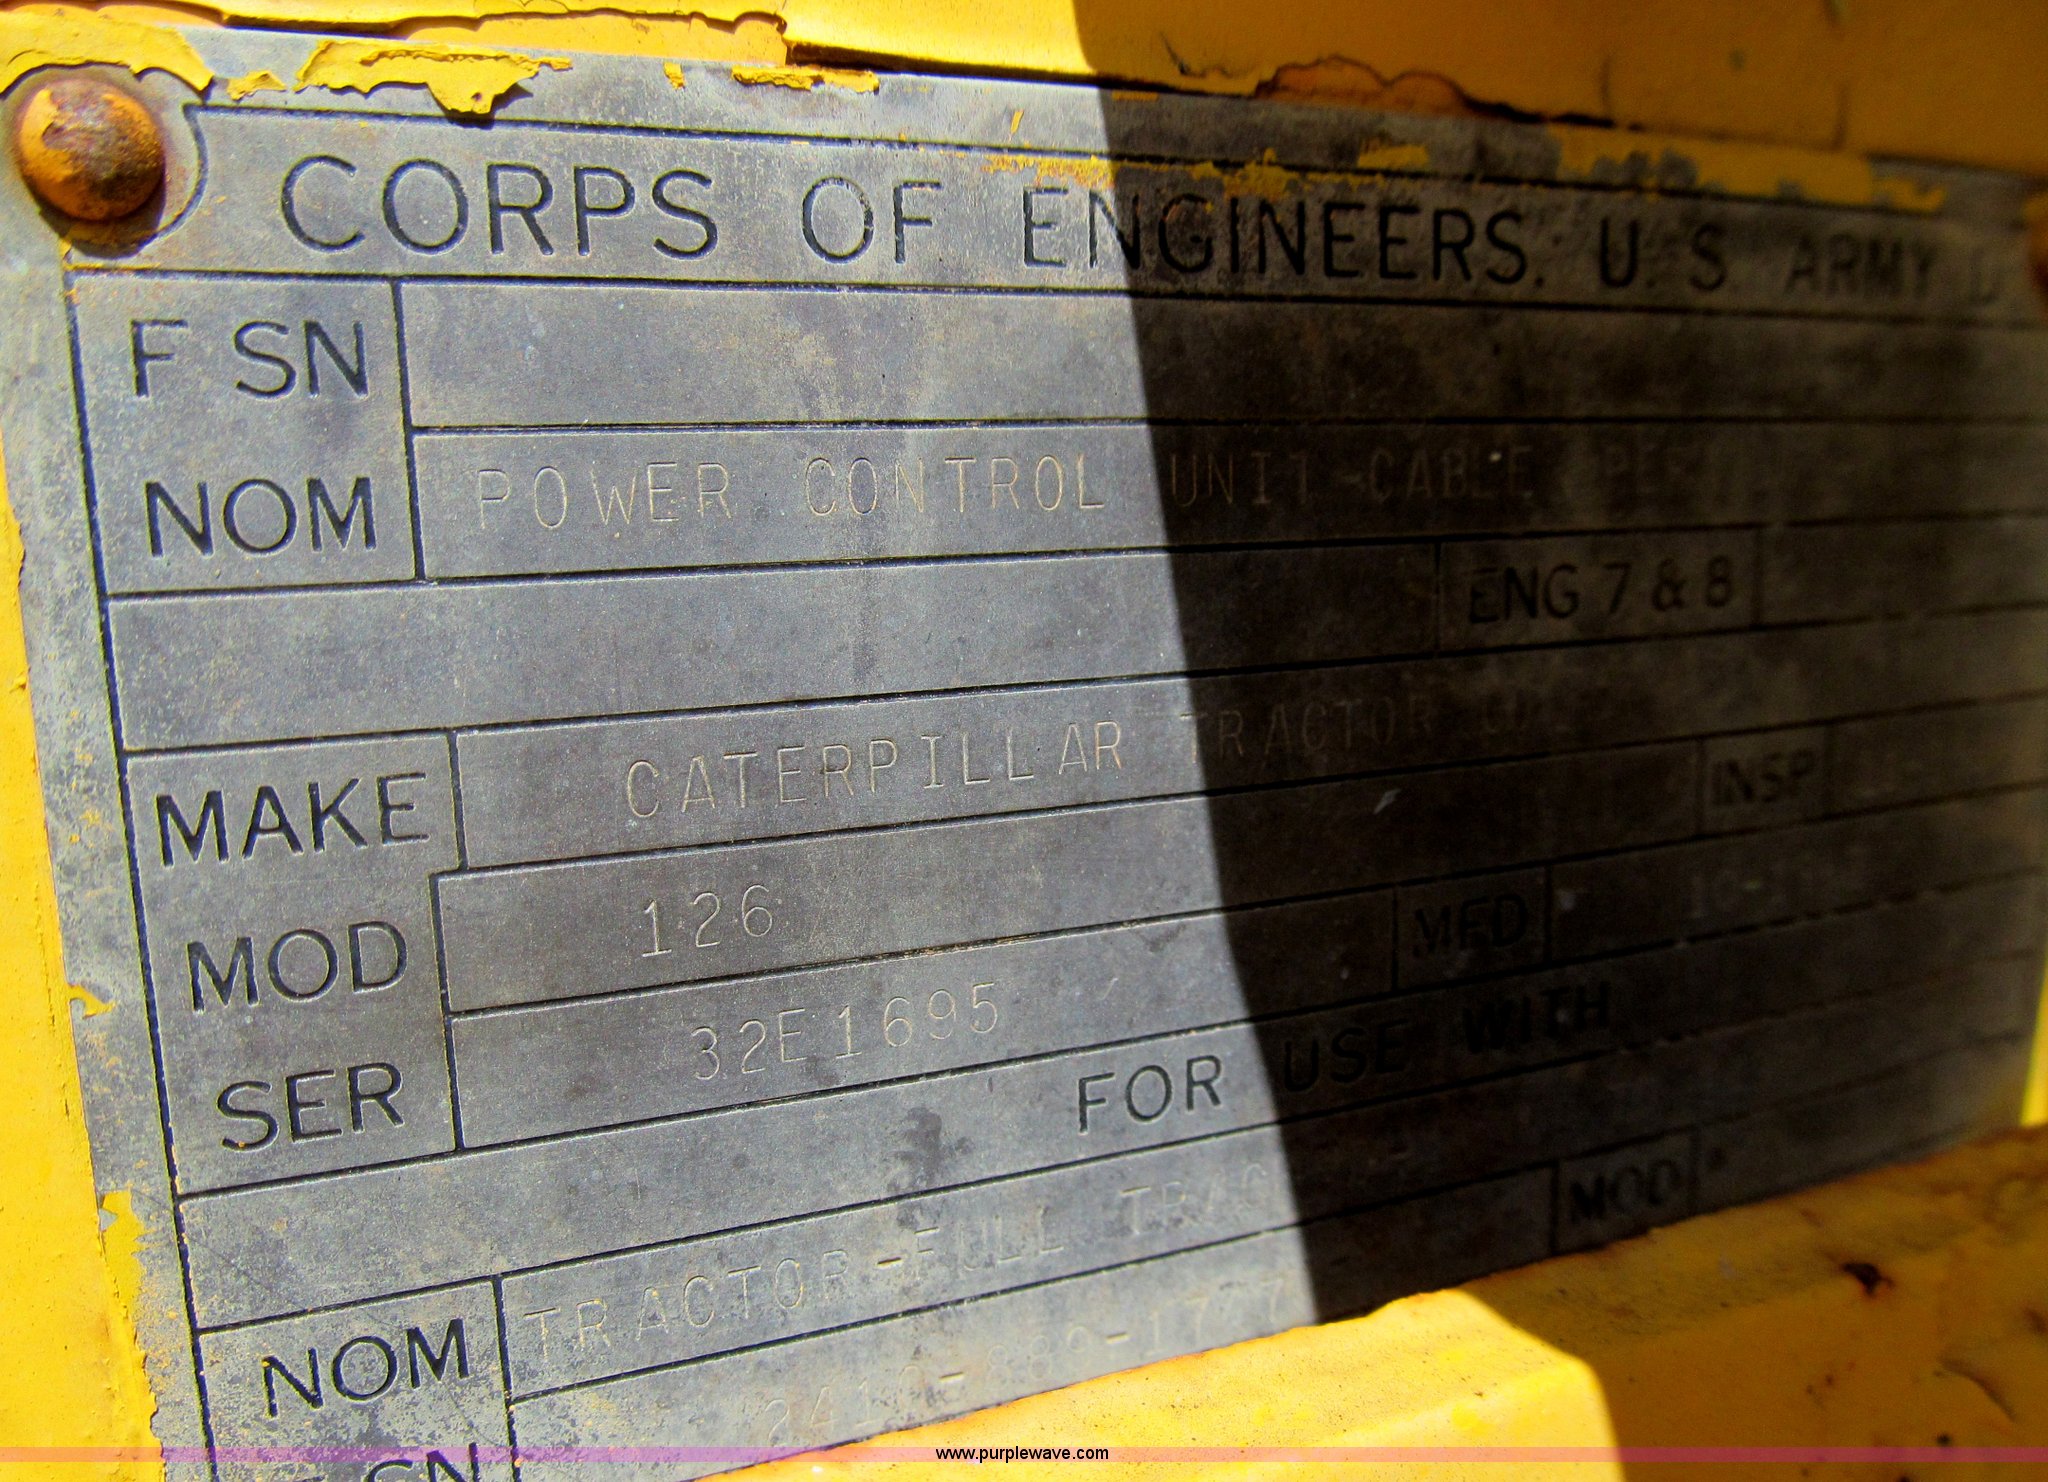 CORPS OF ENGINEERS, U. S. ARMY
F SN
NOM POWER CONTROL UNIT-CABLE
ENG 7 & 8
MAKE CATERPILLAR TRACTOR
INSP
MOD 126
MFD
SER 32E1695
FOR USE WITH
NOM TRACTOR-FULL TRAC
MOD
SN 2410-889-1777
www.purplewave.com